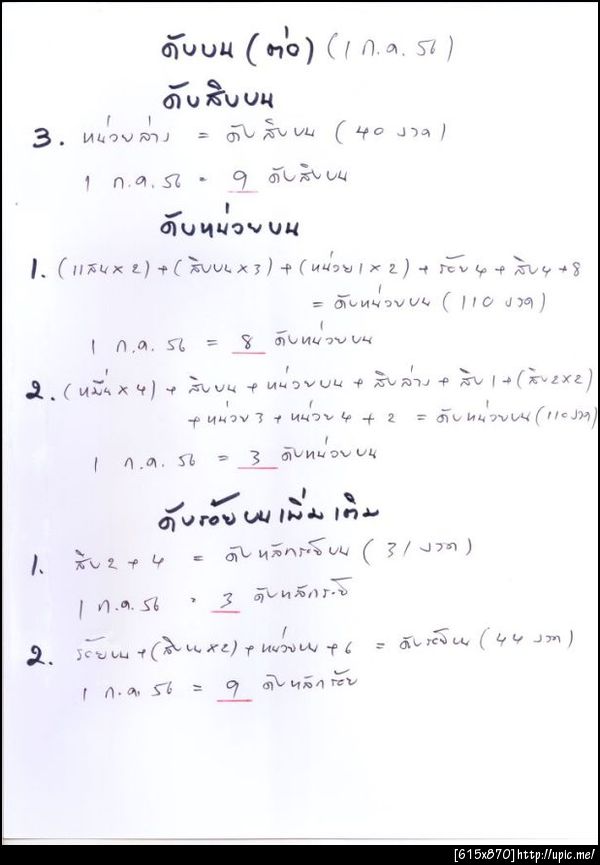 ดับบน (ต่อ) (1 ก.ค. 56)
ดับสิบบน
3. หน่วยล่าง = ดับสิบบน (40 งวด)
1 ก.ค. 56 = 9 ดับสิบบน
ดับหน่วยบน
1. (แสน×2) + (สิบบน×3) + (หน่วย1×2) + ร้อย4 + สิบ4 + 8
= ดับหน่วยบน (110 งวด)
1 ก.ค. 56 = 8 ดับหน่วยบน
2. (หมื่น×4) + สิบบน + หน่วยบน + สิบล่าง + สิบ1 + (สิบ2×2)
+ หน่วย3 + หน่วย4 + 2 = ดับหน่วยบน (110 งวด)
1 ก.ค. 56 = 3 ดับหน่วยบน
ดับร้อยบนเพิ่มเติม
1. สิบ2 + 4 = ดับหลักร้อยบน (31 งวด)
1 ก.ค. 56 = 3 ดับหลักร้อย
2. ร้อยบน + (สิบบน×2) + หน่วยบน + 6 = ดับร้อยบน (44 งวด)
1 ก.ค. 56 = 9 ดับหลักร้อย
[615x870]http://upic.me/